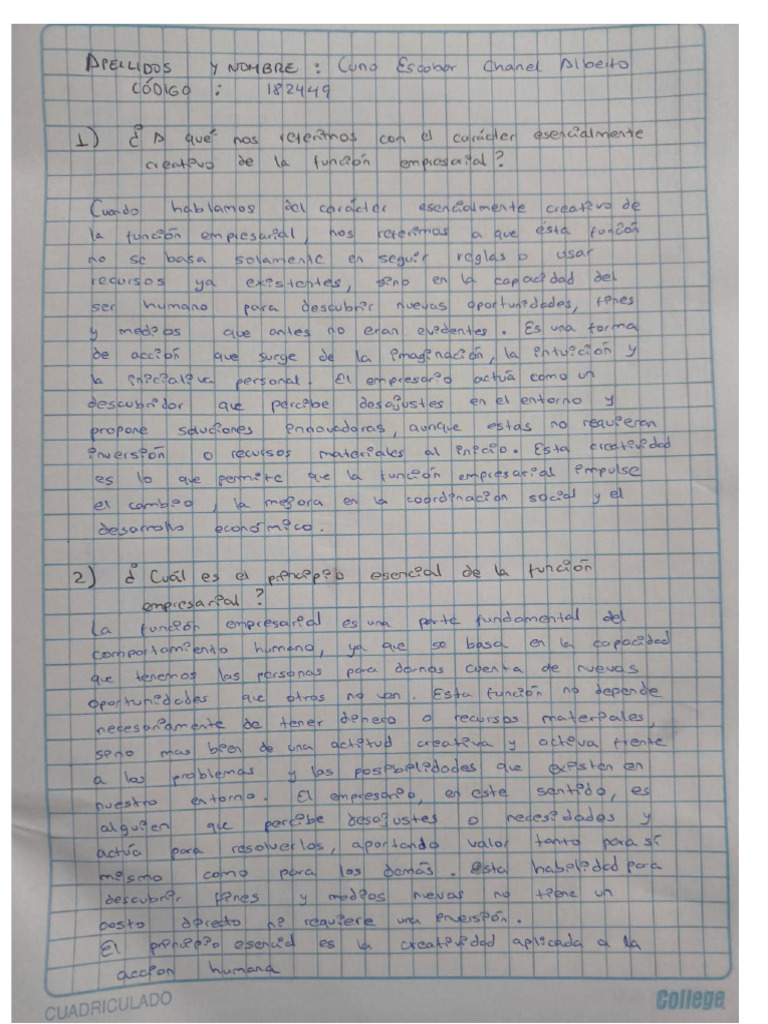 APELLIDOS Y NOMBRE : Cuno Escobar Chanel Alberto
CÓDIGO : 182449
1) ¿A qué nos referimos con el carácter esencialmente
creativo de la función empresarial?
Cuando hablamos del carácter esencialmente creativo de
la función empresarial, nos referimos a que esta función
no se basa solamente en seguir reglas o usar
recursos ya existentes, sino en la capacidad del
ser humano para descubrir nuevas oportunidades, fines
y medios que antes no eran evidentes. Es una forma
de acción que surge de la imaginación, la intuición y
la iniciativa personal. El empresario actúa como un
descubridor que percibe desajustes en el entorno y
propone soluciones innovadoras, aunque estas no requieran
inversión o recursos materiales al inicio. Esta creatividad
es lo que permite que la función empresarial impulse
el cambio, la mejora en la coordinación social y el
desarrollo económico.
2) ¿Cuál es el principio esencial de la función
empresarial?
La función empresarial es una parte fundamental del
comportamiento humano, ya que se basa en la capacidad
que tenemos las personas para darnos cuenta de nuevas
oportunidades que otros no ven. Esta función no depende
necesariamente de tener dinero o recursos materiales,
sino mas bien de una actitud creativa y activa frente
a los problemas y las posibilidades que existen en
nuestro entorno. El empresario, en este sentido, es
alguien que percibe desajustes o necesidades y
actúa para resolverlos, aportando valor tanto para sí
mismo como para los demás. Esta habilidad para
descubrir fines y medios nuevas no tiene un
costo directo ni requiere una inversión.
El principio esencial es la creatividad aplicada a la
accion humana
CUADRICULADO
College